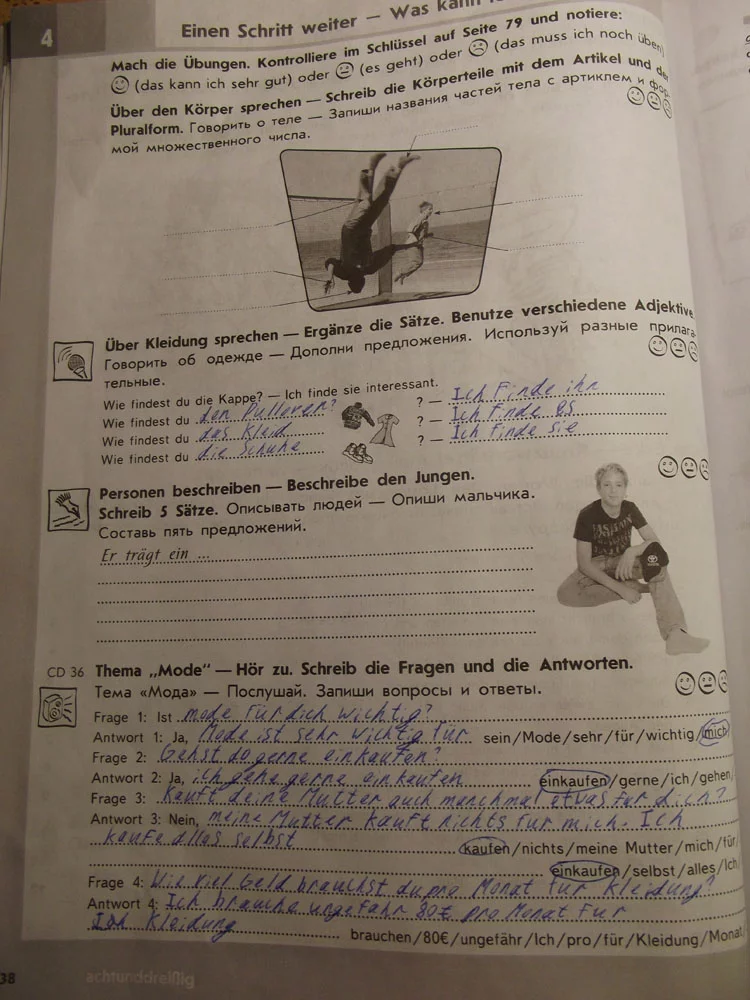 4
Einen Schritt weiter — Was kann
Mach die Übungen. Kontrolliere im Schlüssel auf Seite 79 und notiere:
(das kann ich sehr gut) oder (es geht) oder (das muss ich noch üben)
Über den Körper sprechen — Schreib die Körperteile mit dem Artikel und der
Pluralform. Говорить о теле — Запиши названия частей тела с артиклем и фор-
мой множественного числа.
Über Kleidung sprechen — Ergänze die Sätze. Benutze verschiedene Adjektive.
Говорить об одежде — Дополни предложения. Используй разные прилага-
тельные.
Wie findest du die Kappe? — Ich finde sie interessant.
Wie findest du den Pullover? ? — Ich finde ihn
Wie findest du das Kleid ? — Ich finde es
Wie findest du die Schuhe ? — Ich finde sie
Personen beschreiben — Beschreibe den Jungen.
Schreib 5 Sätze. Описывать людей — Опиши мальчика.
Составь пять предложений.
Er trägt ein ...
CD 36 Thema „Mode" — Hör zu. Schreib die Fragen und die Antworten.
Тема «Мода» — Послушай. Запиши вопросы и ответы.
Frage 1: Ist mode für dich wichtig?
Antwort 1: Ja, Mode ist sehr wichtig für sein/Mode/sehr/für/wichtig/mich
Frage 2: Gehst do gerne einkaufen?
Antwort 2: Ja, ich gehe gerne einkaufen einkaufen/gerne/ich/gehen
Frage 3: kauft deine Mutter auch manchmal etwas für dich?
Antwort 3: Nein, meine Mutter kauft nichts für mich. Ich
kaufe alles selbst kaufen/nichts/meine Mutter/mich/für
einkaufen/selbst/alles/Ich
Frage 4: Wie viel Geld brauchst du pro Monat für Kleidung?
Antwort 4: Ich brauche ungefähr 80€ pro Monat für
Kleidung brauchen/80€/ungefähr/Ich/pro/für/Kleidung/Monat
38 achtunddreißig